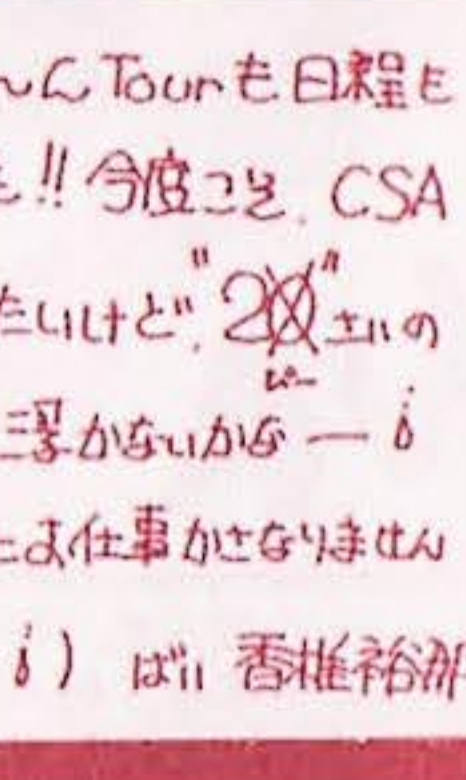 んTourも日程も
!! 今度こそ、CSA
たいけど、"20"さいの
ぴー
浮かないかなー
たお仕事かさなりません
) ばい 香椎裕那